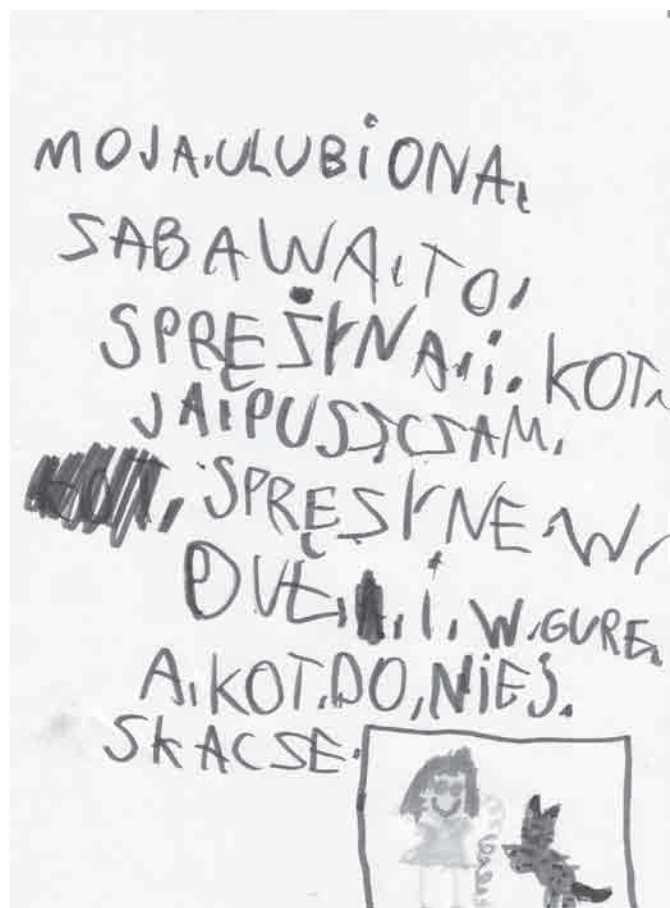 MOJA.ULUBIONA.
SABAWA.TO.
SPRĘŻYNA.i.KOT.
JA.PUSZCSAM.
SPRĘSYNE.W.
DUŁ.i.W.GURE.
A.KOT.DO.NIEJ.
SKACSE.